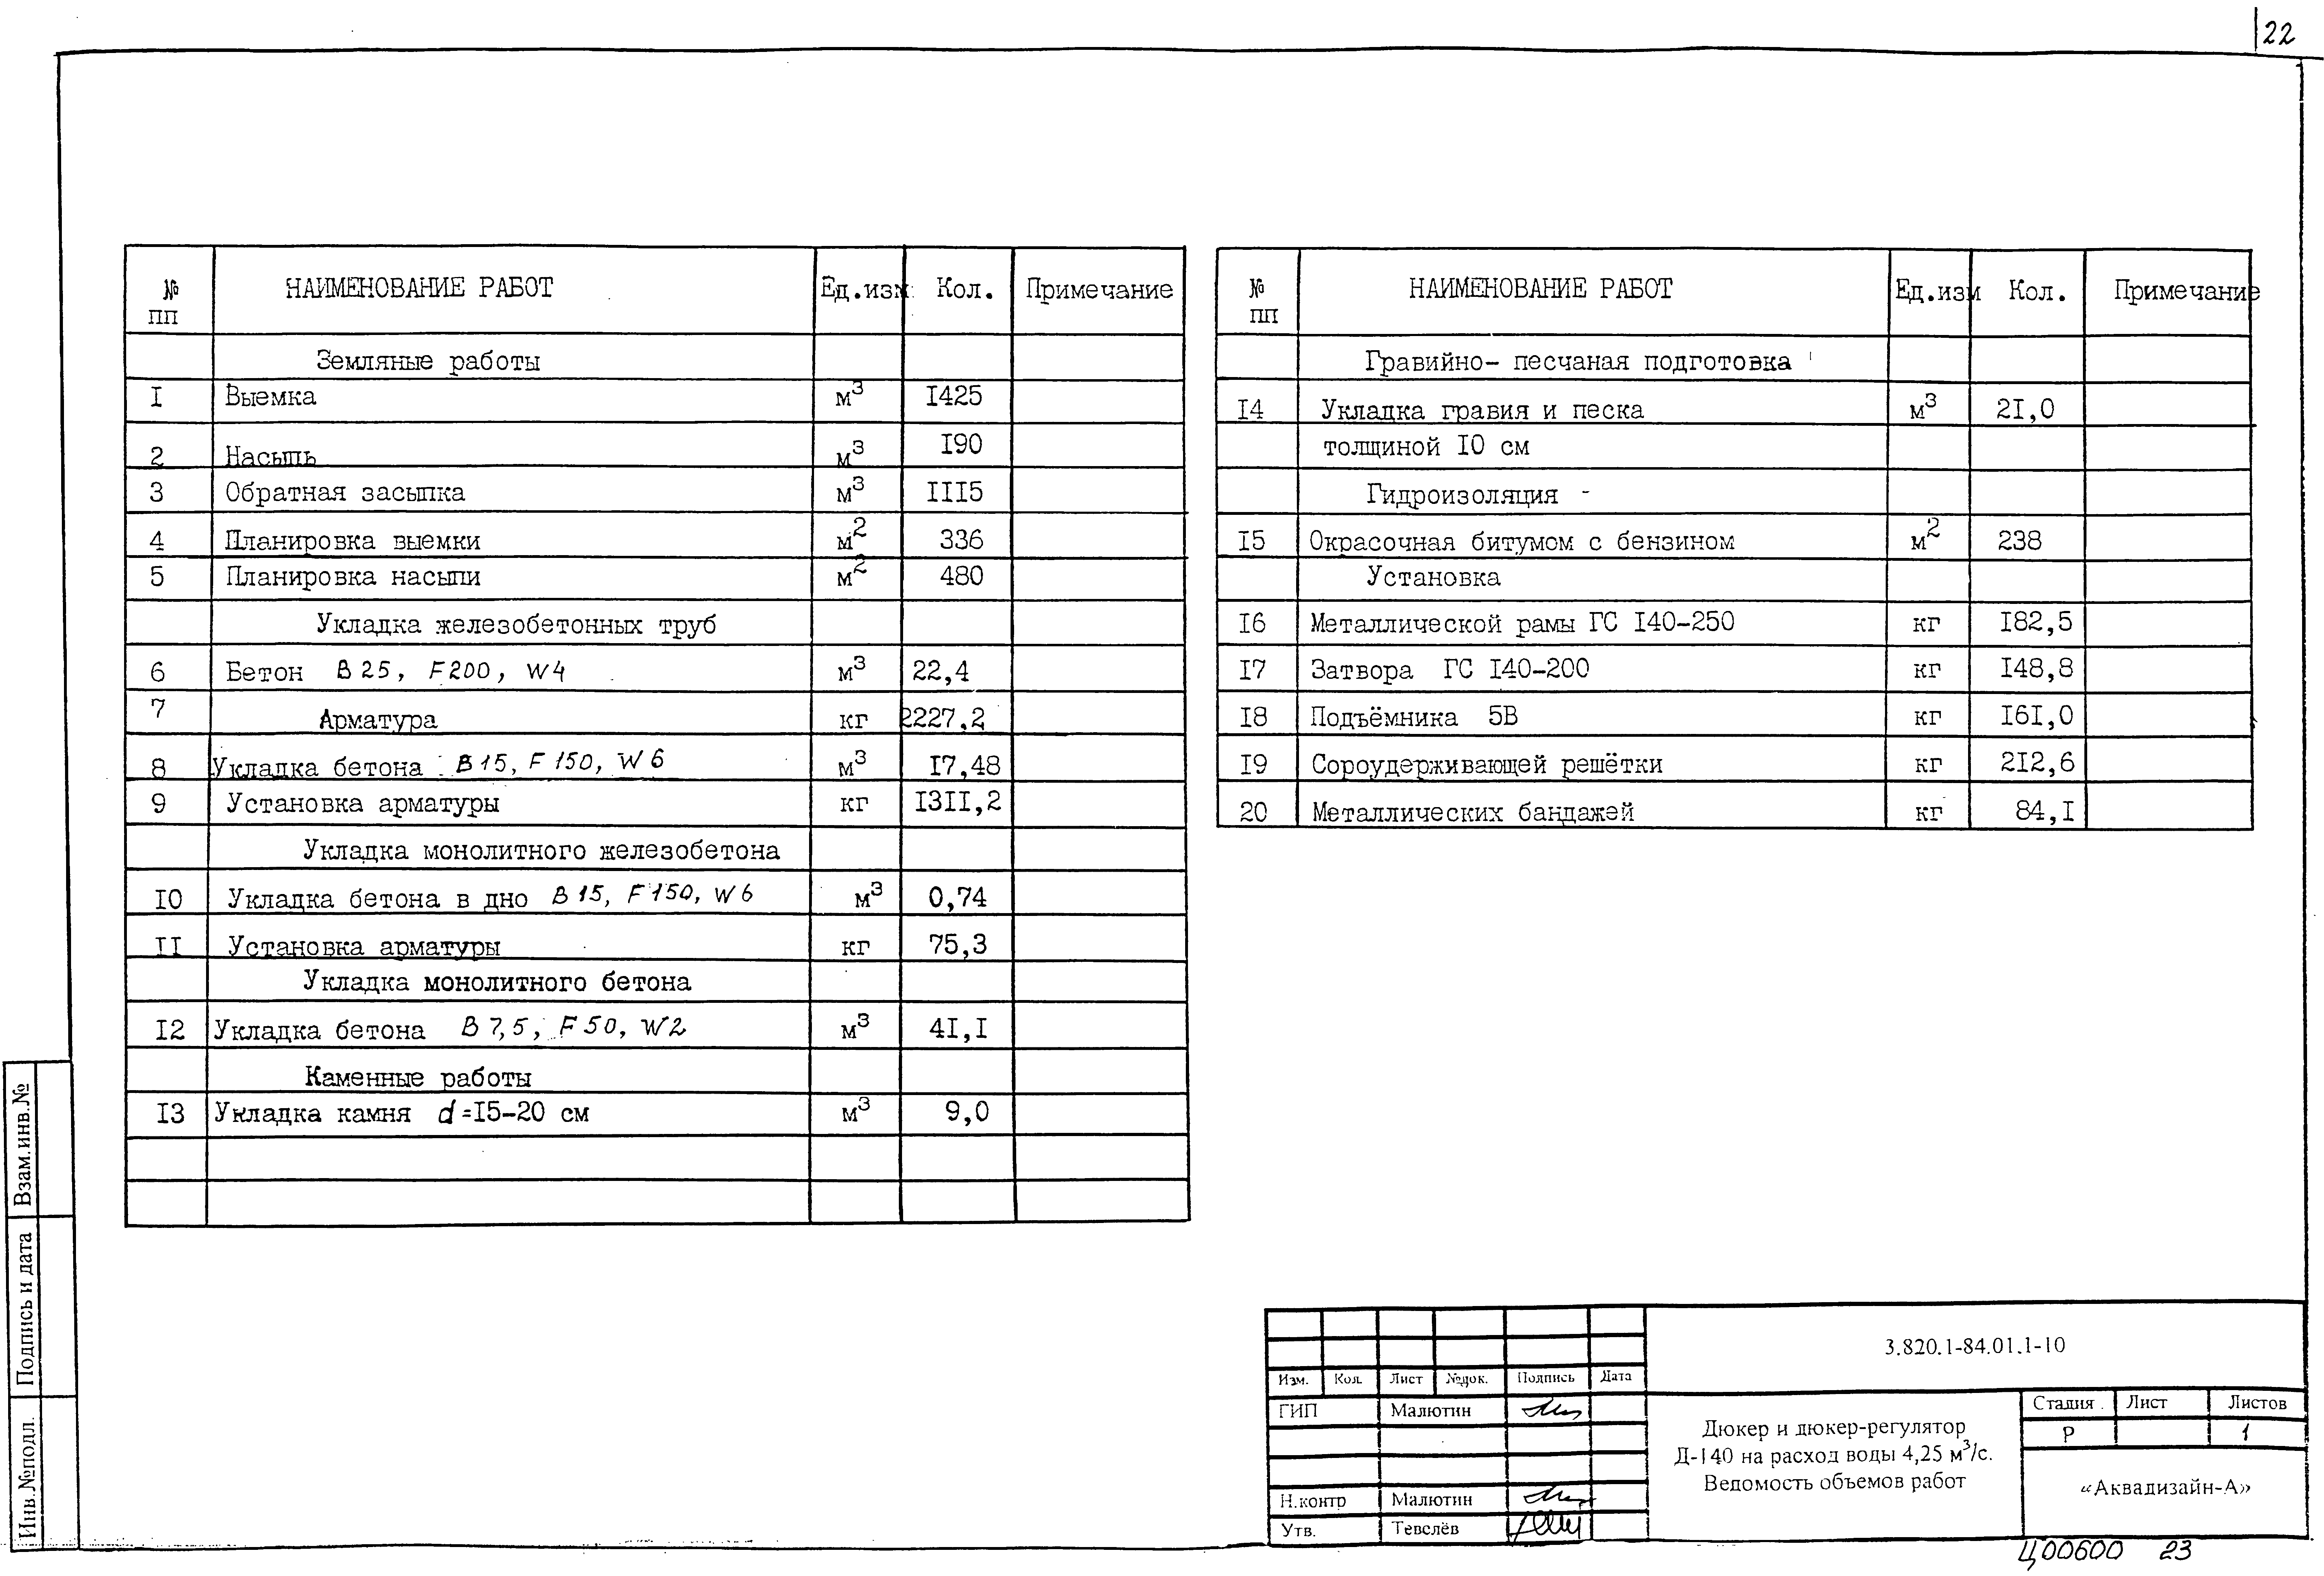 22
№ пп НАИМЕНОВАНИЕ РАБОТ Ед.изм. Кол. Примечание
Земляные работы
1 Выемка м³ 1425
2 Насыпь м³ 190
3 Обратная засыпка м³ 1115
4 Планировка выемки м² 336
5 Планировка насыпи м² 480
Укладка железобетонных труб
6 Бетон В25, F200, W4 м³ 22,4
7 Арматура кг 2227,2
8 Укладка бетона В15, F150, W6 м³ 17,48
9 Установка арматуры кг 1311,2
Укладка монолитного железобетона
10 Укладка бетона в дно В15, F150, W6 м³ 0,74
11 Установка арматуры кг 75,3
Укладка монолитного бетона
12 Укладка бетона В7,5, F50, W2 м³ 41,1
Каменные работы
13 Укладка камня d=15-20 см м³ 9,0
№ пп НАИМЕНОВАНИЕ РАБОТ Ед.изм Кол. Примечание
Гравийно- песчаная подготовка
14 Укладка гравия и песка м³ 21,0
толщиной 10 см
Гидроизоляция -
15 Окрасочная битумом с бензином м² 238
Установка
16 Металлической рамы ГС 140-250 кг 182,5
17 Затвора ГС 140-200 кг 148,8
18 Подъёмника 5В кг 161,0
19 Сороудерживающей решётки кг 212,6
20 Металлических бандажей кг 84,1
Взам.инв.№
Подпись и дата
Инв.№подл.
3.820.1-84.01.1-10
Изм. Кол. Лист №док. Подпись Дата
ГИП Малютин
Н.контр Малютин
Утв. Тевелёв
Дюкер и дюкер-регулятор
Д-140 на расход воды 4,25 м³/с.
Ведомость объемов работ
Стадия Лист Листов
Р 1
«Аквадизайн-А»
Ц00600 23